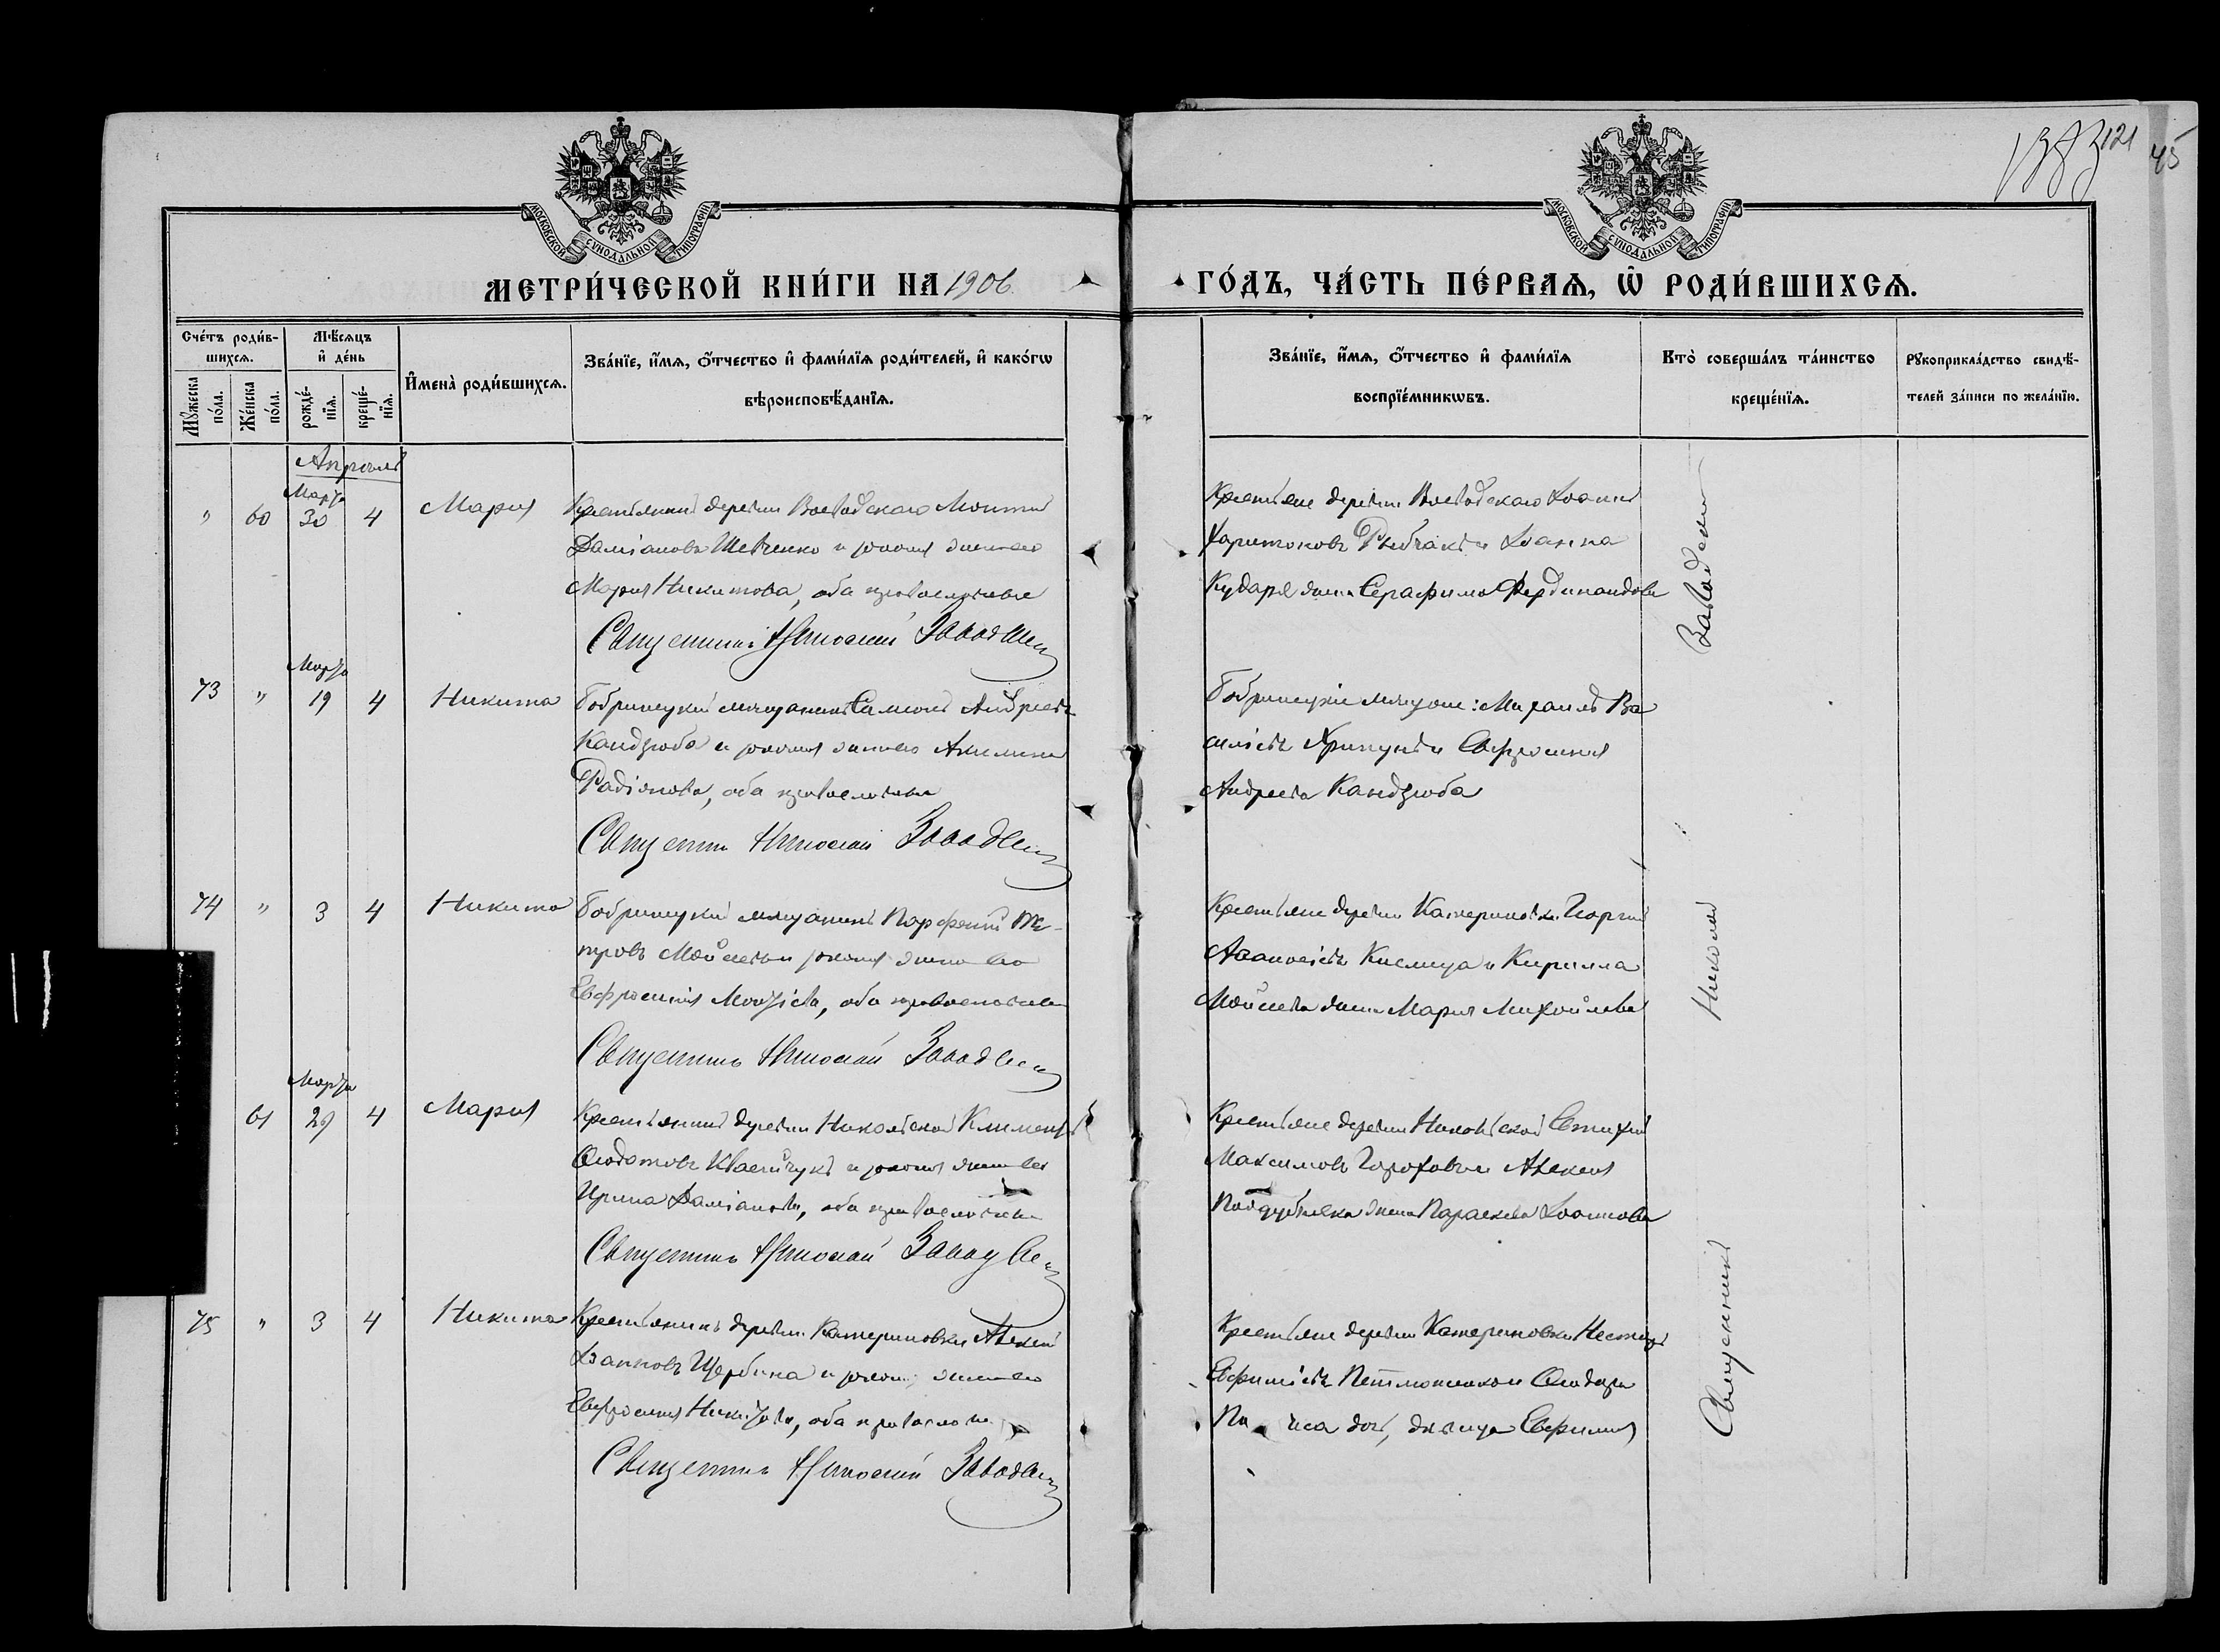 1383 121 45
МОСКОВСКОЙ СѴНОДАЛЬНОЙ ТИПОГРАФІИ
МОСКОВСКОЙ СѴНОДАЛЬНОЙ ТИПОГРАФІИ
МЕТРИ́ЧЕСКОЙ КНИ́ГИ НА 1906
ГО́ДЪ, ЧА́СТЬ ПЕ́РВАѦ, Ѿ РОДИ́ВШИХСѦ.
Сче́тъ роди́в-
шихсѧ.
Мꙋ́жеска по́ла.
Же́нска по́ла.
Мѣ́сѧцъ
и҆ де́нь
рожде́-нїѧ.
креще́-нїѧ.
И҆мена̀ роди́вшихсѧ.
Зва́нїе, и҆́мѧ, ѻ҆́тчество и҆ фами́лїѧ роди́телей, и҆ како́гѡ
вѣроисповѣ́данїѧ.
Зва́нїе, и҆́мѧ, ѻ҆́тчество и҆ фами́лїѧ
воспрїе́мникѡвъ.
Кто̀ соверша́лъ та́инство
креще́нїѧ.
Рꙋкоприкла́дство свидѣ́-
телей за́писи по жела́нїю.
Апрѣль
Марта
" 60 30 4 Марія Крестьянинъ деревни Воеводскаго
Даміановъ Шевченко и законная жена его
Марія Никитова, оба православные
Священникъ Николай Заводовскій
Крестьяне деревни Воеводскаго Іоаннъ
Харитоновъ Рыбчакъ и Іоанна
Кударя жена Серафима Фердинандова
Марта
73 " 19 4 Никита Бобринецкій мѣщанинъ Самсонъ Андреевъ
Кандзюба и законная жена его Акилина
Радіонова, оба православные
Священникъ Николай Заводовскій
Бобринецкіе мѣщане: Михаилъ Ва
сильевъ Хрипунъ и Евфросинія
Андреева Кандзюба
74 " 3 4 Никита Бобринецкій мѣщанинъ Парфеній Пе-
тровъ Мойсеевъ и законная жена его
Евфросинія Моисіева, оба православные
Священникъ Николай Заводовскій
Крестьяне деревни Катериновки Георгій
Кислица и Кирилла
Мойсеева жена Марія Михайлова
Марта
61 29 4 Марія Крестьянинъ деревни Никольской Климентъ
Феодотовъ Квасничукъ и законная жена его
Ирина Даміанова, оба православные
Священникъ Николай Заводовскій
Крестьяне деревни Никольской Евтихій
Максимовъ и Алексея
Поддубняка жена Параскева Іоаннова
75 " 3 4 Никита Крестьянинъ деревни Катериновки Алексей
Іоанновъ Щербина и законная жена его
Евфросинія Никитова, оба православные
Священникъ Николай Заводовскій
Крестьяне деревни Катериновки Несторъ
Евфиміевъ и Феодора
дочь, дѣвица Евфимія
Священникъ Николай Заводовскій